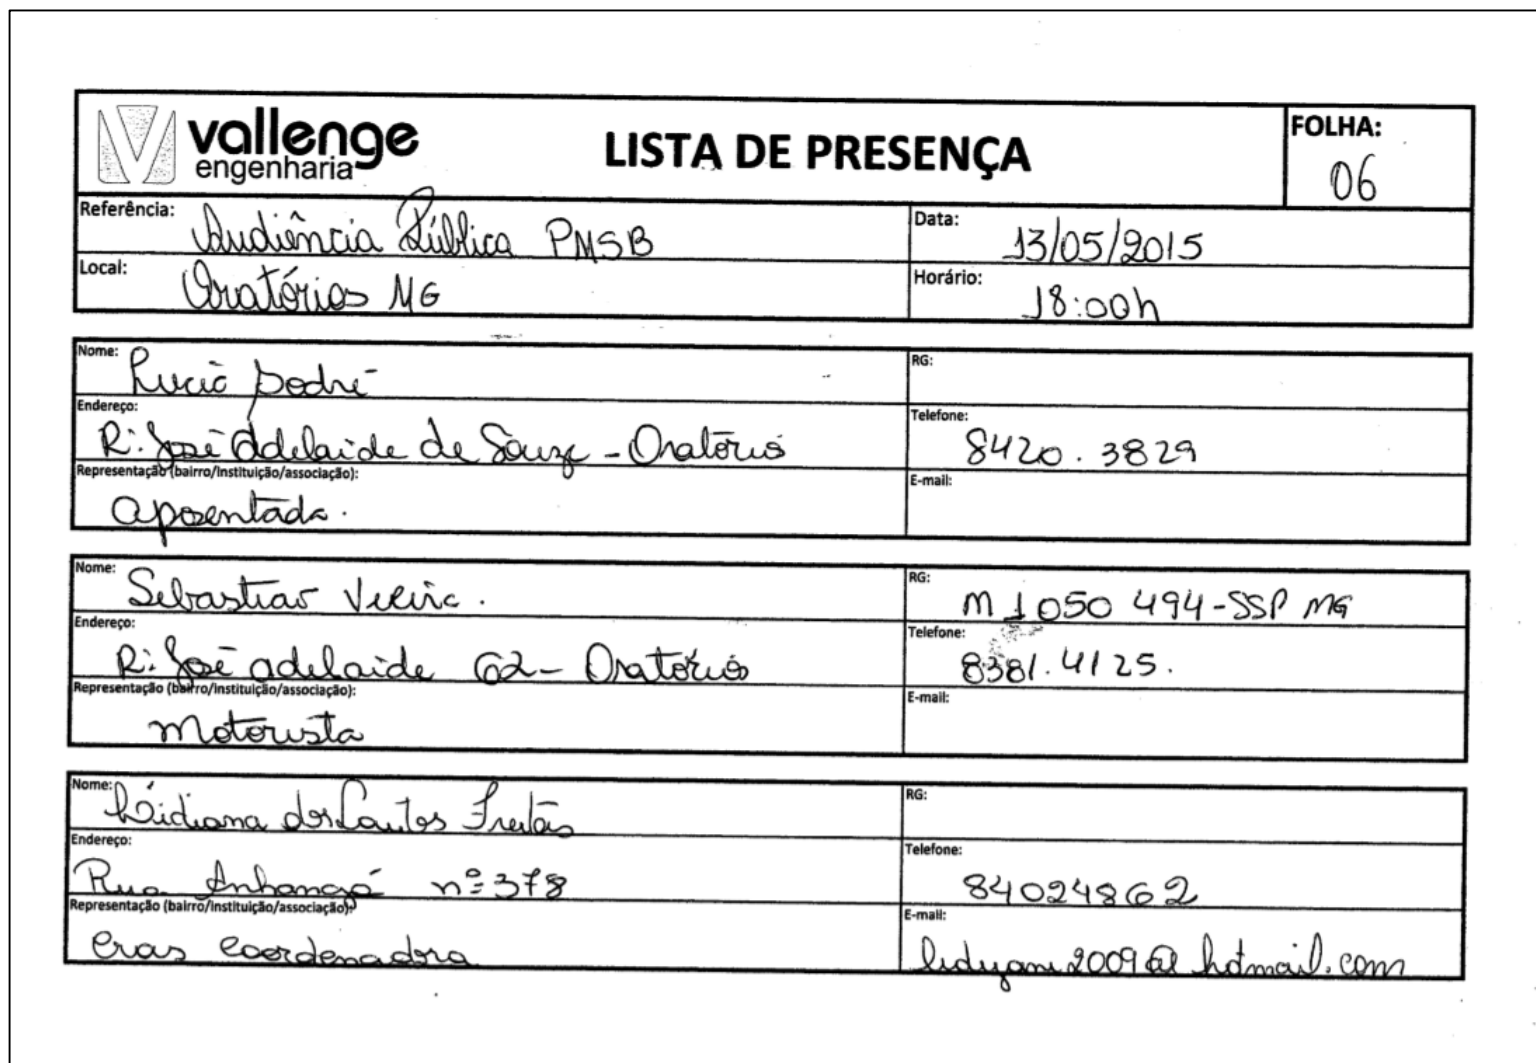 vallenge
engenharia
LISTA DE PRESENÇA
FOLHA:
06
Referência: Audiência Pública PMSB
Data: 13/05/2015
Local: Oratórios MG
Horário: 18:00h
Nome: Lucia Sodré
RG:
Endereço: R: José Adelaide de Souza - Oratórios
Telefone: 8420.3829
Representação (bairro/instituição/associação):
aposentada.
E-mail:
Nome: Sebastiao Vieira.
RG: M 1050 494-SSP MG
Endereço: R: José adelaide 62- Oratórios
Telefone: 8381.4125.
Representação (bairro/instituição/associação):
Motorista
E-mail:
Nome: Lidiana dos Santos Freitas
RG:
Endereço: Rua nº 378
Telefone: 84024862
Representação (bairro/instituição/associação):
Cras Coordenadora
E-mail: @hotmail.com